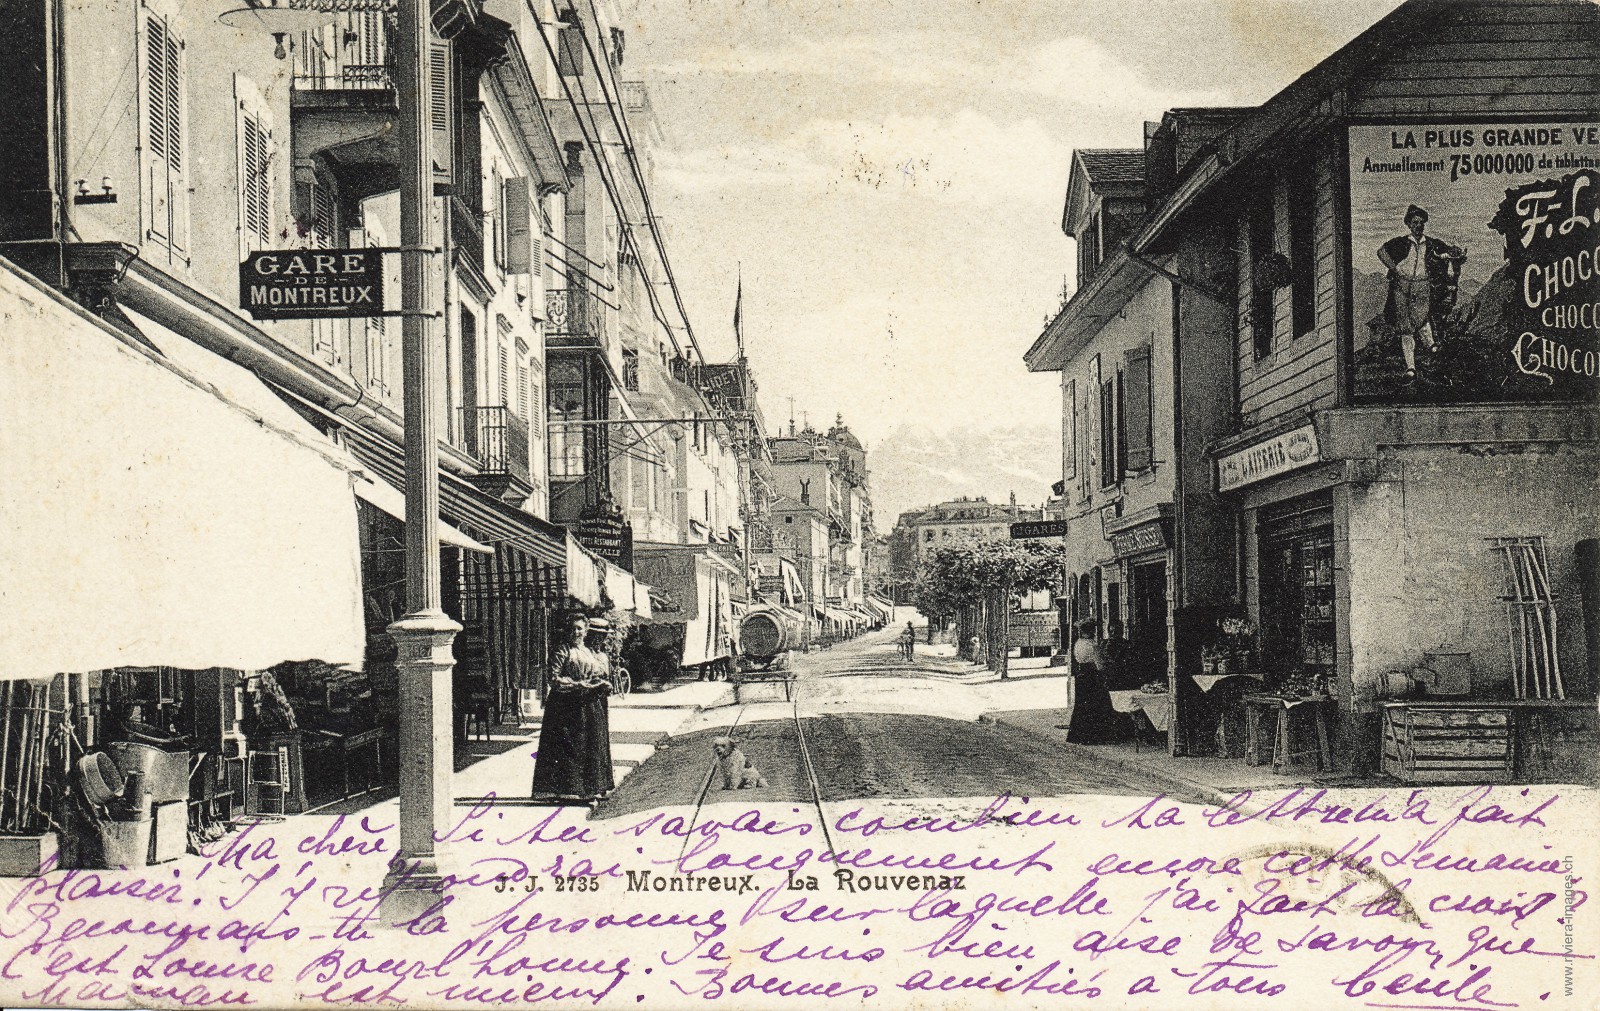 LA PLUS GRANDE VE
Annuellement 75000000 de tablettes
F.-L.
CHOCO
CHOCO
CHOCO
GARE
DE
MONTREUX
LAITERIE
CIGARES
HOTEL RESTAURANT
Ma chère, Si tu savais combien ta lettre m'a fait
plaisir. J'y répondrai longuement encore cette semaine.
J. J. 2735 Montreux. La Rouvenaz
Reconnais-tu la personne sur laquelle j'ai fait la croix?
C'est Louise Bourl'honne. Je suis bien aise de savoir que
Maman est mieux. Bonnes amitiés à tous Cécile.
www.riviera-images.ch